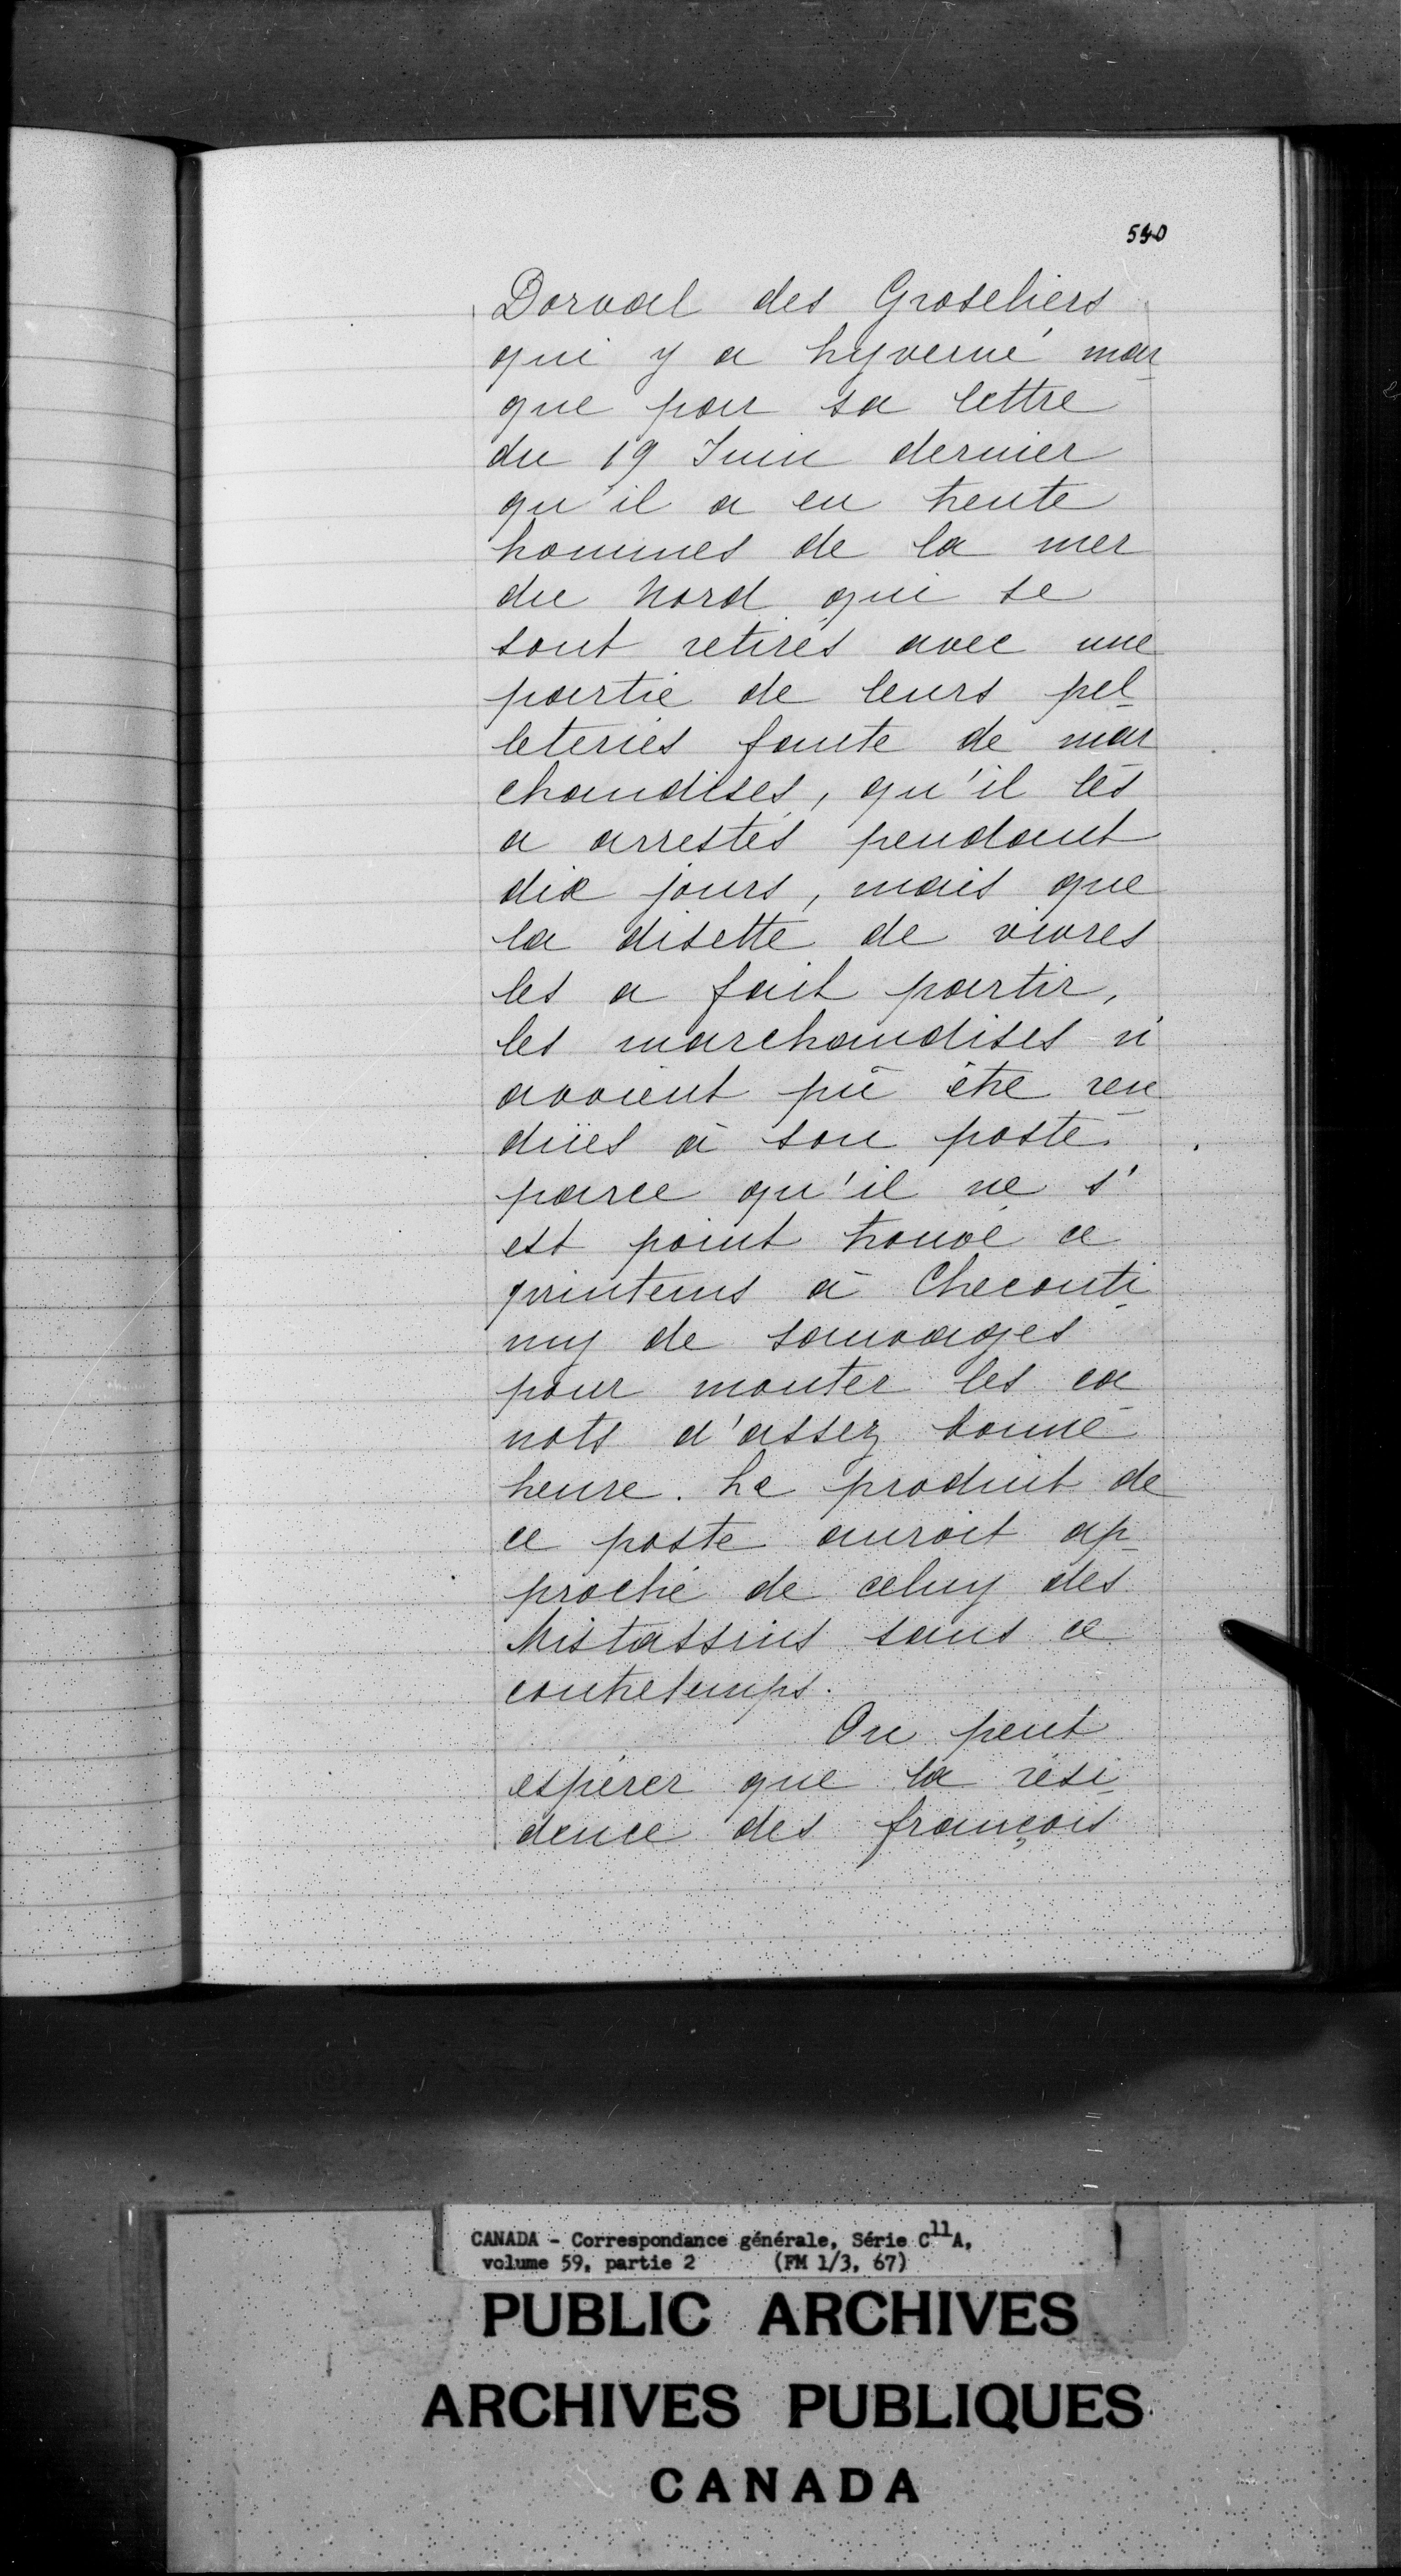 540
Dorval des Groseliers
qui y a hyverné mar
que par sa lettre
du 19 Juin dernier
qu'il a eu trente
hommes de la mer
du Nord qui se
sont retirés avec une
partie de leurs pel
leteries faute de mar
chandises, qu'il les
a arrestés pendant
dix jours, mais que
la disette de vivres
les a fait partir,
les marchandises n'
avoient pû être ren
dües à son poste
parce qu'il ne s'
est point trouvé ce
printems à Checouti
my de sauvages
pour monter les ca
nots d'assez bonne
heure. Le produit de
ce poste auroit ap
proché de celuy des
Mistassins sans ce
contretemps.
On peut
espérer que la rési
dence des françois
CANADA - Correspondance générale, Série C11A,
volume 59, partie 2 (FM 1/3, 67)
PUBLIC ARCHIVES
ARCHIVES PUBLIQUES
CANADA